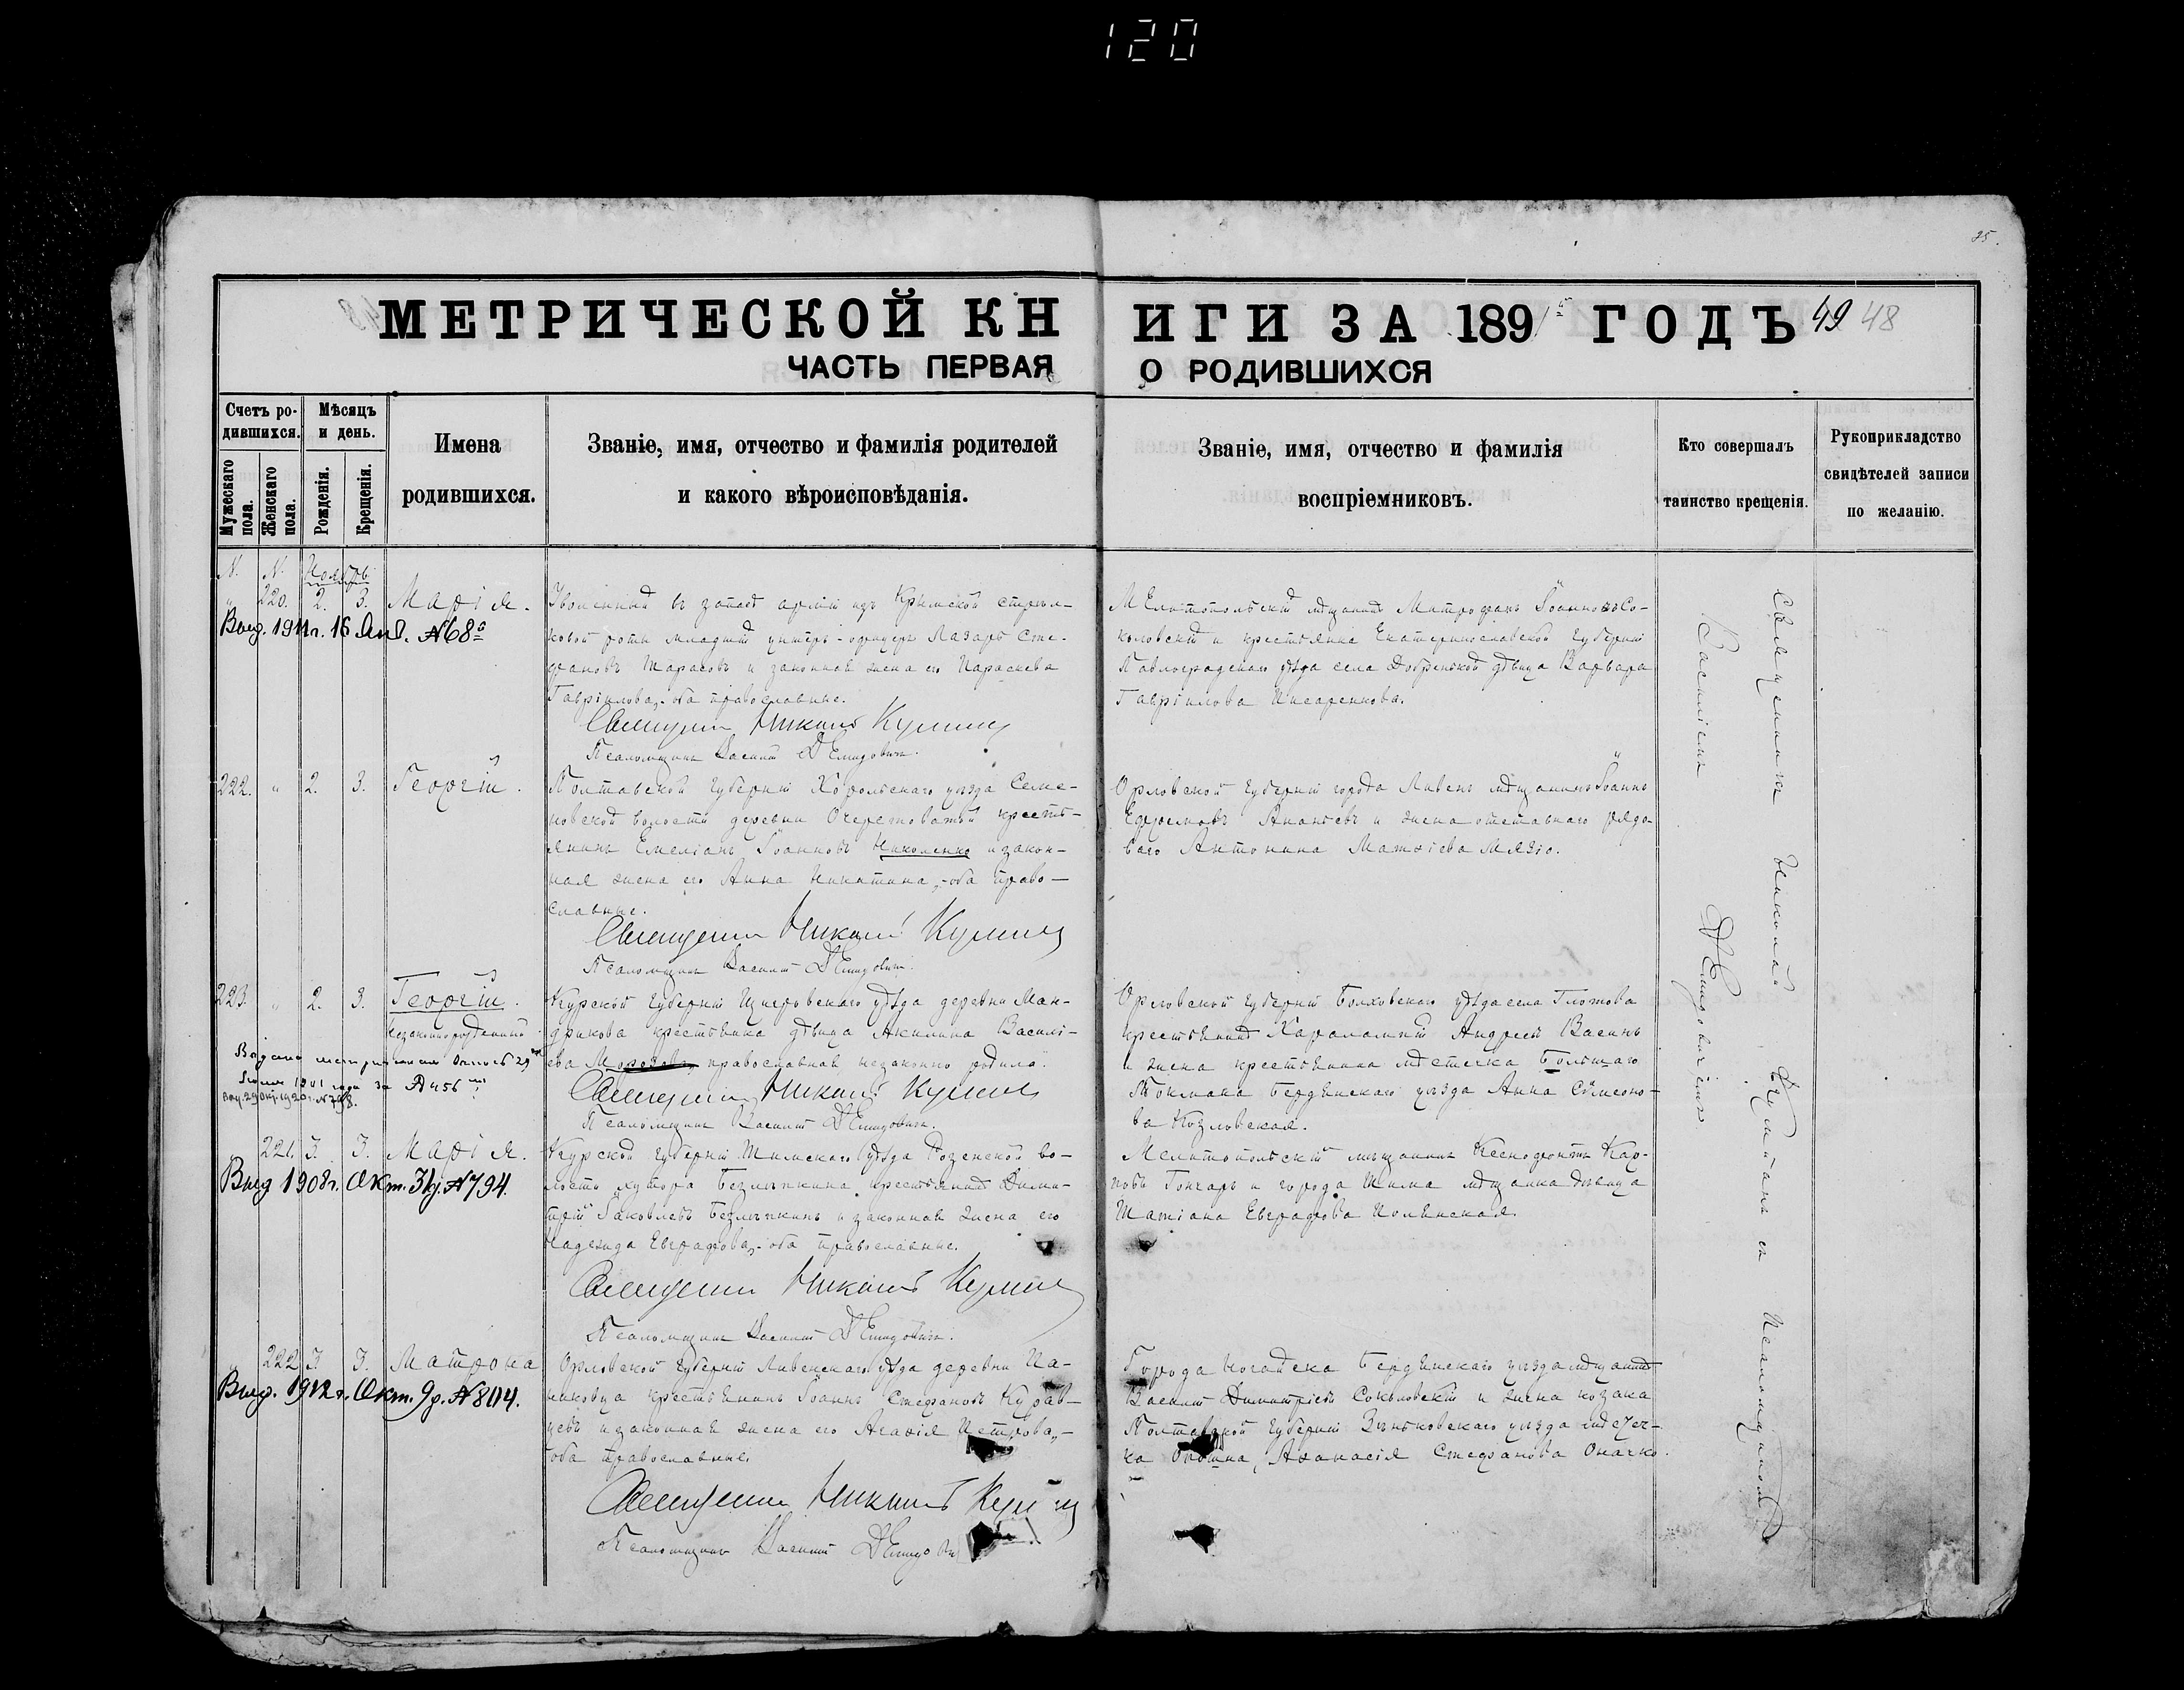 120
25.
МЕТРИЧЕСКОЙ КНИГИ ЗА 1891 ГОДЪ 49 48
ЧАСТЬ ПЕРВАЯ О РОДИВШИХСЯ
Счетъ родившихся.
Мужескаго пола.
Женскаго пола.
Мѣсяцъ и день.
Рожденія.
Крещенія.
Имена
родившихся.
Званіе, имя, отчество и фамилія родителей
и какого вѣроисповѣданія.
Званіе, имя, отчество и фамилія
воспріемниковъ.
Кто совершалъ
таинство крещенія.
Рукоприкладство
свидѣтелей записи
по желанію.
N. N. Ноябрь
" 220. 2. 3. Марія.
Выд. 1911 г. 16 Янв. №68
Уволенный въ запасъ арміи изъ Крымской стрѣл-
ковой роты младшій унтеръ-офицеръ Лазарь Сте-
фановъ Тарасовъ и законная жена его Параскева
Гавріилова, оба православные.
Священникъ Николай
Псаломщикъ Василій Демидовичъ.
Мелитопольскій мѣщанинъ Митрофанъ Іоанновъ Со-
коловскій и крестьянка Екатеринославской губерніи
Павлоградскаго уѣзда села Добренькой дѣвица Варвара
Гавріилова Писаренкова.
222. " 2. 3. Георгій.
Полтавской губерніи Хорольскаго уѣзда Семе-
новской волости деревни Очеретоватой кресть-
янинъ Емеліанъ Іоанновъ Николенко и закон-
ная жена его Анна Никитина, оба право-
славные.
Священникъ Николай
Псаломщикъ Василій Демидовичъ.
Орловской губерніи города Ливенъ мѣщанинъ Іоаннъ
Ефремовъ Ананьевъ и жена отставнаго рядо-
ваго Антонина Матѳіева
223. " 2. 3. Георгій.
незаконнорожденный
1901 года за №456
№798.
Курской губерніи Щигровскаго уѣзда деревни Ман-
дрикова крестьянка дѣвица Акилина Василі-
ева православная, незаконно родила.
Священникъ Николай
Псаломщикъ Василій Демидовичъ.
Орловской губерніи Болховскаго уѣзда села Глотова
крестьянинъ Харалампій Андреевъ Васинъ
и жена крестьянина мѣстечка Большаго
Токмака Бердянскаго уѣзда Анна Сѵмеоно-
ва Козловская.
221. 3. 3. Марія.
Выд 1908 г. Окт. 31д. №794.
Курской губерніи Тимскаго уѣзда во-
лости хутора Безлыпкина крестьянинъ Дими-
трій Іаковлевъ Безлыпкинъ и законная жена его
Надежда Евграфова, оба православные.
Священникъ Николай
Псаломщикъ Василій Демидовичъ.
Мелитопольскій мѣщанинъ Ксенофонтъ Кар-
повъ Гончаръ и города Тима мѣщанка дѣвица
Татіана Евграфова Полянская.
" 222 3. 3. Матрона
Выд. 1912 г. Окт. 9д. №804.
Орловской губерніи Ливенскаго уѣзда деревни Па-
никовца крестьянинъ Іоаннъ Стефановъ
и законная жена его Агаѳія Петрова,
оба православные.
Священникъ Николай
Псаломщикъ Василій
Города Ногайска Бердянскаго уѣзда мѣщанинъ
Василій Димитріевъ Соколовскій и жена козака
Полтавской губерніи Зѣньковскаго уѣзда мѣстеч-
ка Опошна, Аѳанасія Стефанова Оначко.
Священникъ Николай съ Псаломщикомъ
Василіемъ Демидовичемъ.